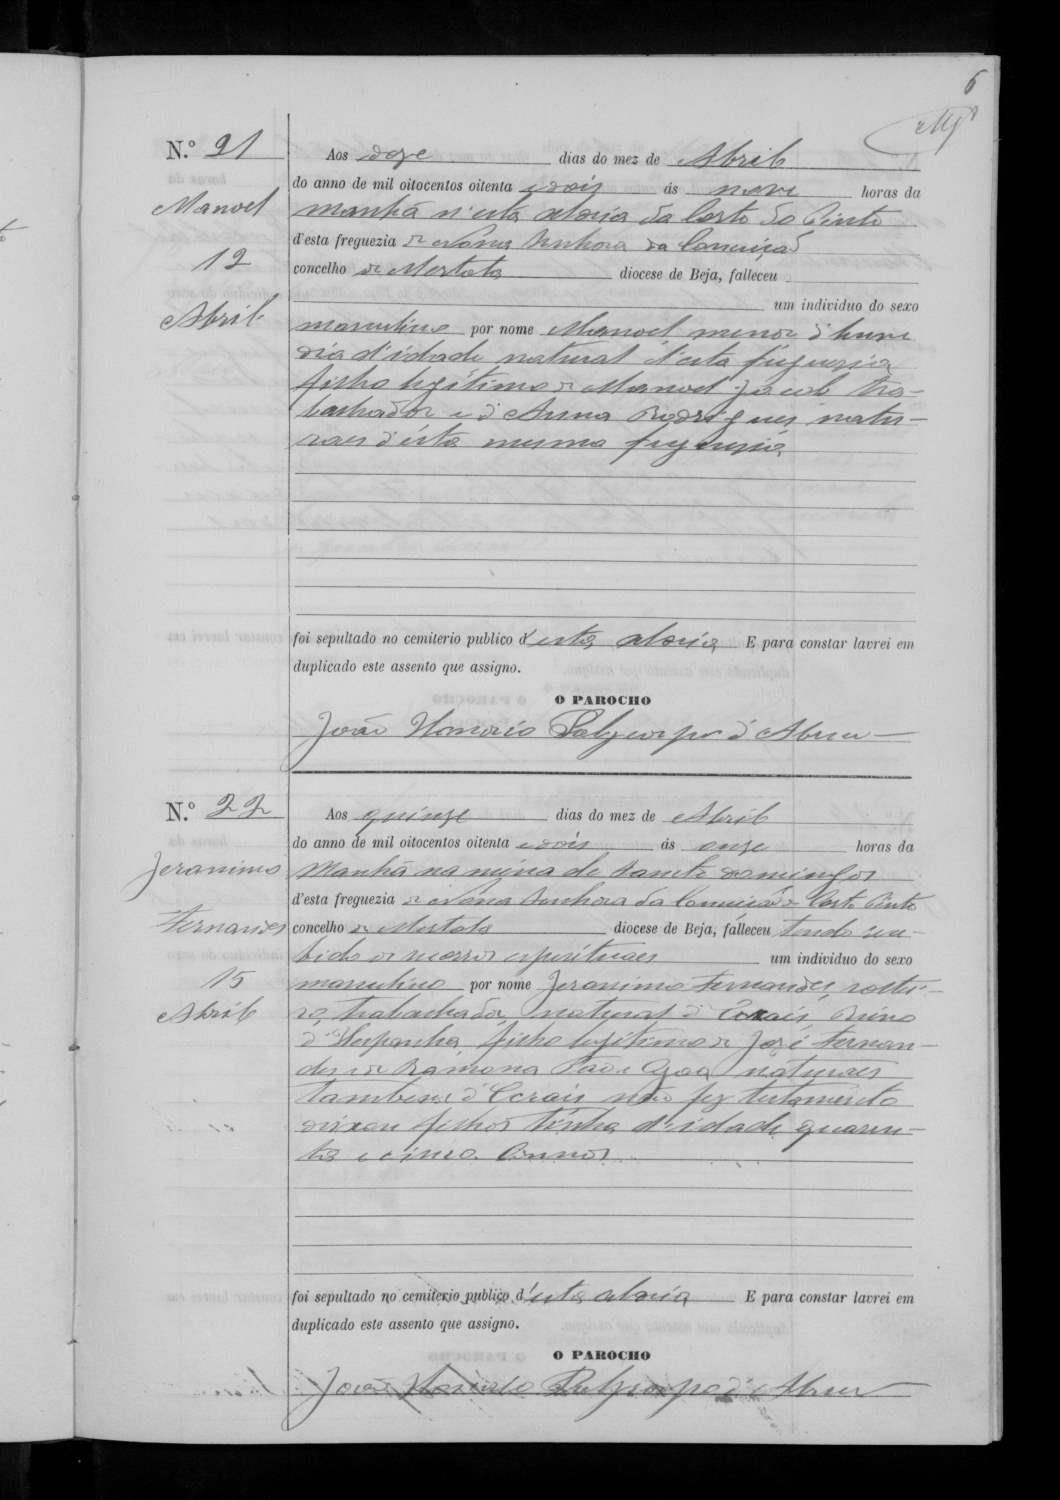 6
N.º 21
Aos doze dias do mez de Abril
do anno de mil oitocentos oitenta e dois ás nove horas da
Manoel
manhã n'esta aldeia da Corte do Pinto
d'esta freguezia de Nossa Senhora da Conceição
12
concelho de Mertola diocese de Beja, falleceu
um individuo do sexo
Abril
masculino por nome Manoel menor d'hum
dia d'idade natural d'esta freguesia
filho legitimo de Manoel Jacob tra-
balhador e d'Anna Rodrigues natu-
raes d'esta mesma freguesia
foi sepultado no cemiterio publico d'esta aldeia E para constar lavrei em
duplicado este assento que assigno.
O PAROCHO
João Honorio Polycarpo d'Abreu
N.º 22
Aos quinze dias do mez de Abril
do anno de mil oitocentos oitenta e dois ás onze horas da
Jeronimo
Manhã na mina de Sancto Domingos
d'esta freguezia de Nossa Senhora da Conceição de Corte Pinto
Fernandes
concelho de Mertola diocese de Beja, falleceu tendo rece-
bido os socorros espirituaes um individuo do sexo
15
masculino por nome Jeronimo Fernandes, soltei-
Abril
ro, trabalhador, natural d' Reino
d'Hespanha, filho legitimo de José Fernan-
des e de Ramona naturaes
tambem d' não fez testamento
deixou filhos tinha d'idade quaren-
ta e cinco annos
foi sepultado no cemiterio publico d'esta aldeia E para constar lavrei em
duplicado este assento que assigno.
O PAROCHO
João Honorio Polycarpo d'Abreu